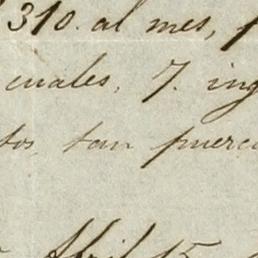 310. al mes,
cuales, 7. ing
tos, tan puerc
Abril 15